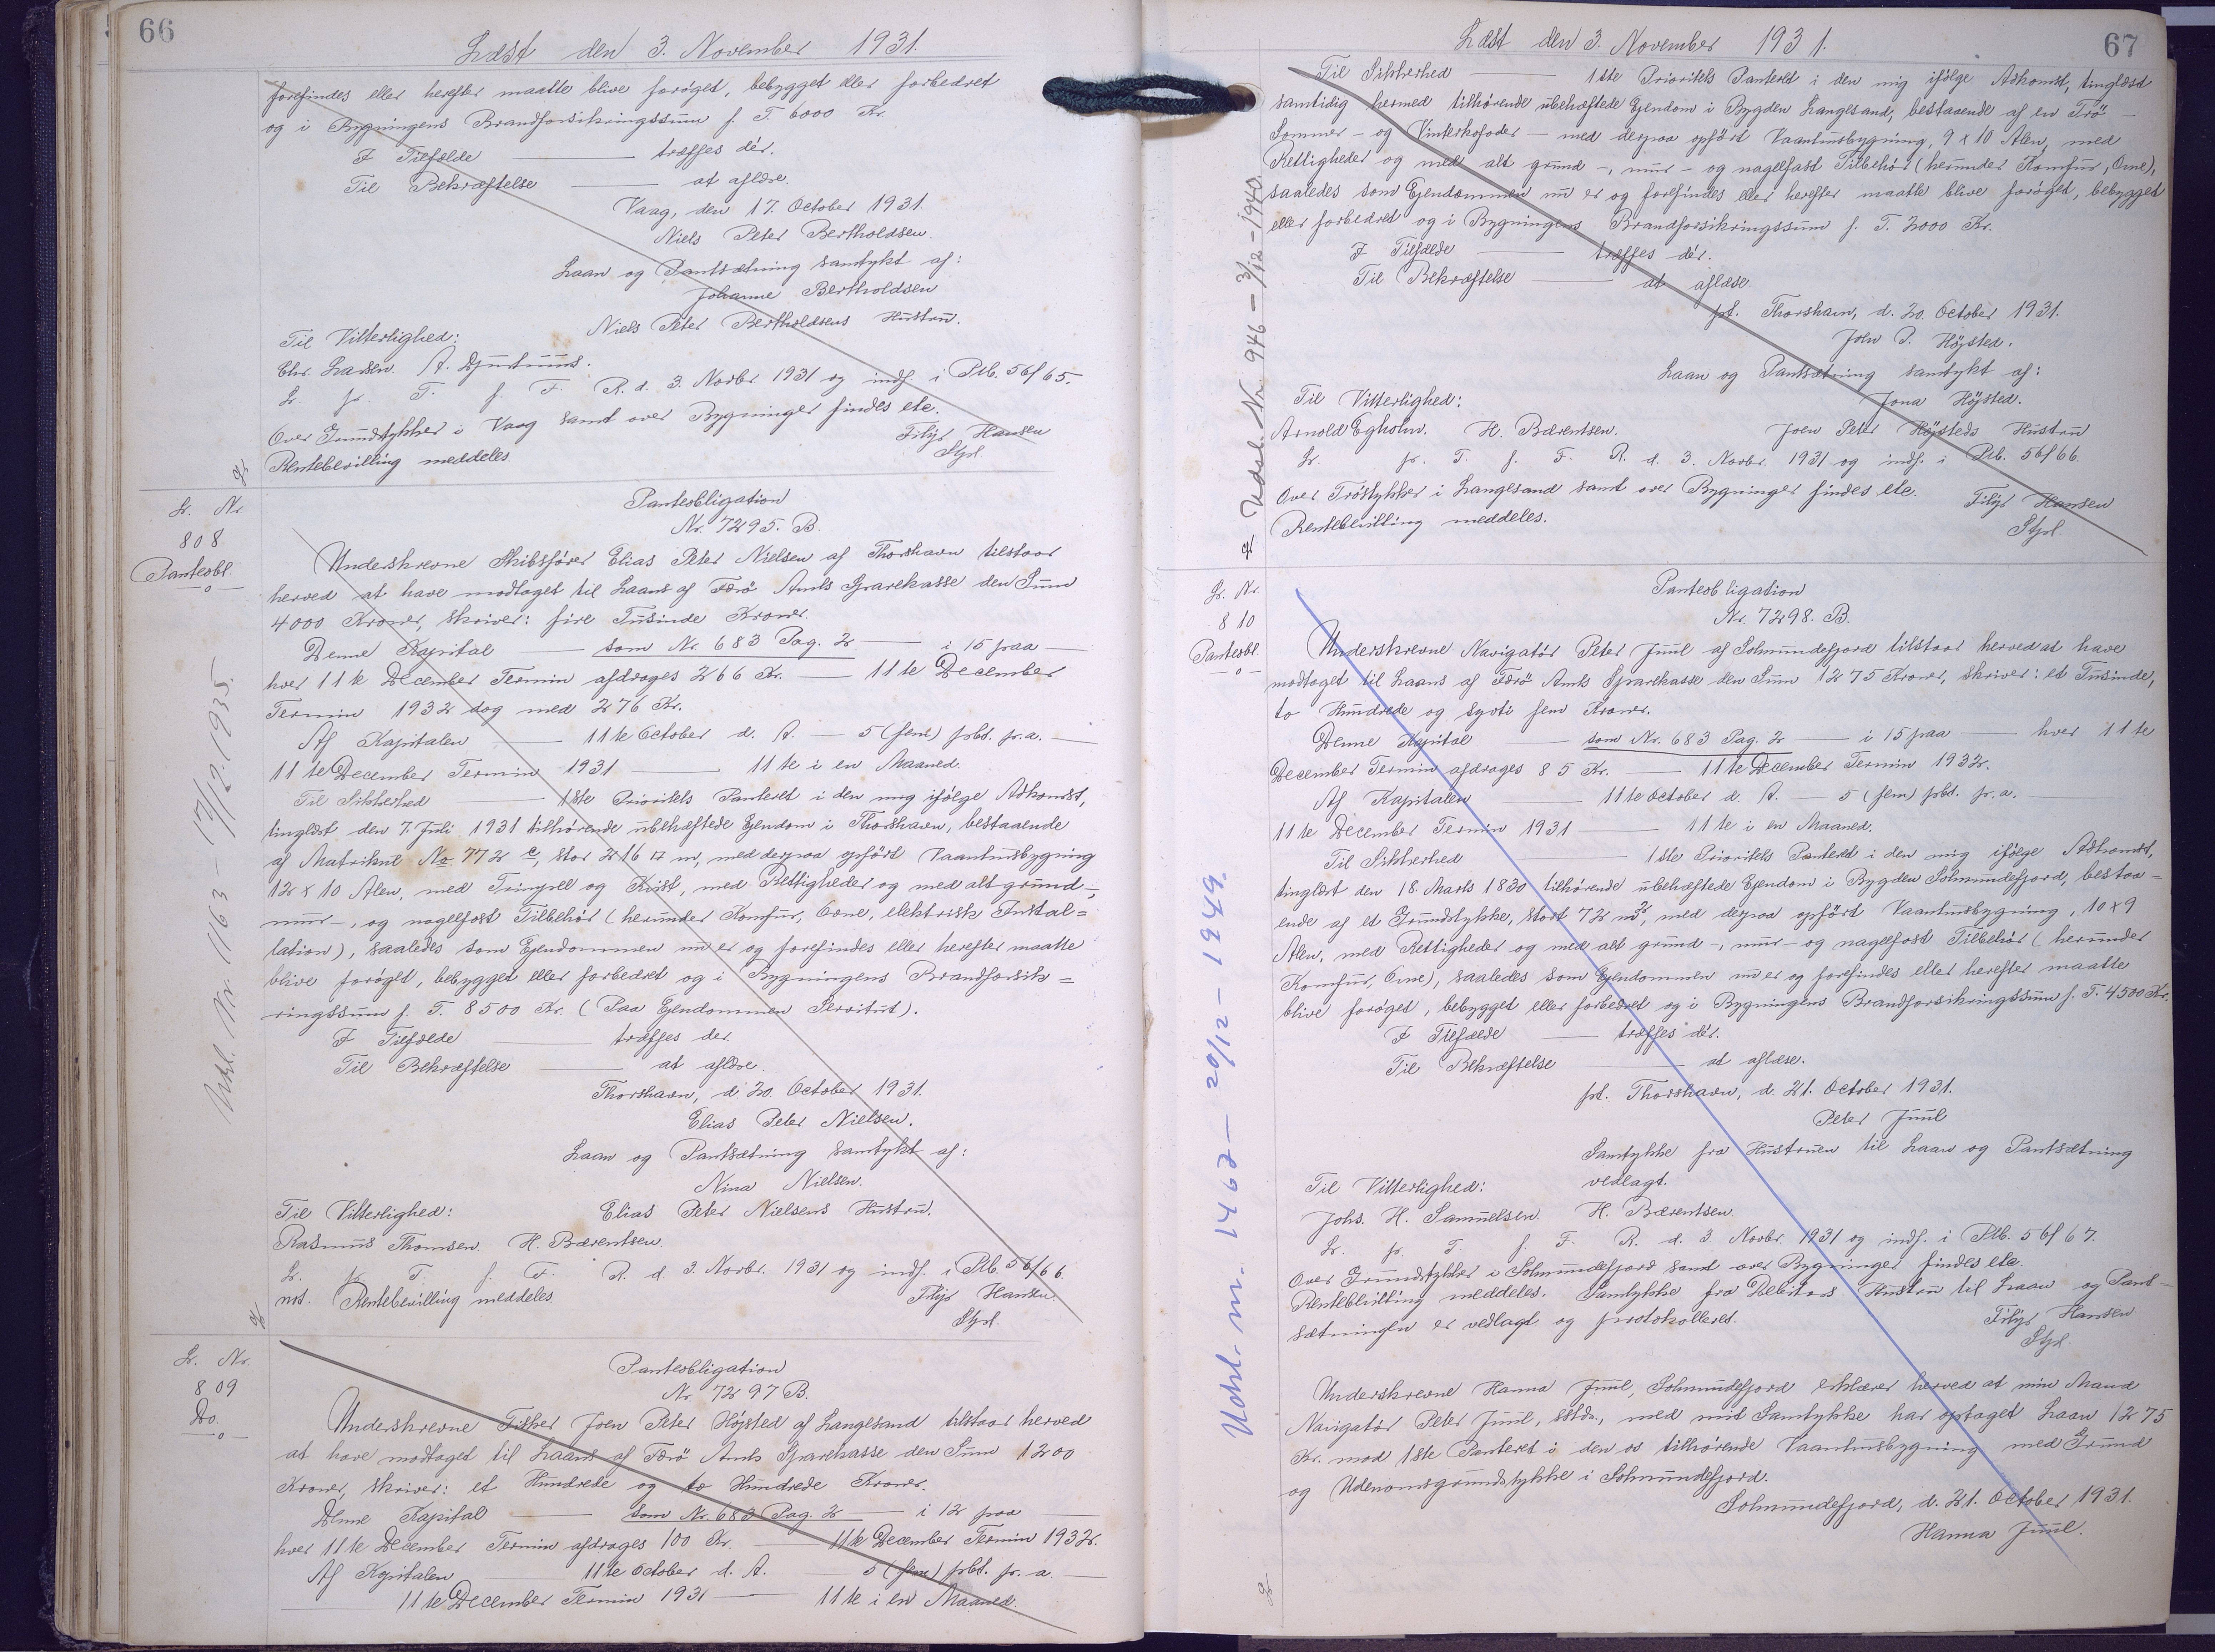 66
Læst den 3. November 1931.
forefindes eller herefter maatte blive forøget, bebygget eller forbedret
og i Bygningens Brandforsikringssum f. T. 6000 Kr.
I Tilfælde ——— træffes dér.
Til Bekræftelse ——— at aflæse.
Vaag, den 17. October 1931.
Niels Peter Bertholdsen.
Laan og Pantsætning samtykt af:
Johanne Bertholdsen
Niels Peter Bertholdsens Hustru.
Til Vitterlighed:
Chr Larsen. A. Djurhuus.
L. p. T. f. F. R. d. 3. Novbr 1931 og indf. i Ptb. 56f 65.
Over Grundstykker i Vaag samt over Bygninger findes etc.
Rentebevilling meddeles.
Filip Hansen
Stfl.
L. Nr.
808
Pantobl.
—o—
Pantobligation
Nr. 7295. B.
Underskrevne Skibsfører Elias Peter Nielsen af Thorshavn tilstaar
herved at have modtaget til Laans af Færö Amts Sparekasse den Sum
4000 Kroner, skriver: fire Tusinde Kroner.
Denne Kapital ——— som Nr. 683 Pag. 2 ——— i 15 paa —
hver 11te December Termin afdrages 266 Kr. ——— 11te December
Termin 1932 dog med 276 Kr.
Af Kapitalen ——— 11te October d. A. — 5 (fem) pct. p.a. —
11te December Termin 1931 ——— 11te i en Maaned.
Til Sikkerhed ——— 1ste Prioritets Panteret i den mig ifølge Adkomst,
tinglæst den 7. Juli 1931 tilhörende ubehæftede Ejendom i Thorshavn, bestaaende
af Matrikul No. 772 e, stor 216 □ m, med derpaa opført Vaaningsbygning
12 x 10 Alen, med Trimpel og Kvist, med Rettigheder og med alt grund-,
mur-, og nagelfast Tilbehör (herunder Komfur, Ovne, elektrisk Instal=
lation), saaledes som Ejendommen nu er og forefindes eller herefter maatte
blive forøget, bebygget eller forbedret og i Bygningens Brandforsik=
ringssum f. T. 8500 Kr. (Paa Ejendommen Servitut).
I Tilfælde ——— træffes der.
Til Bekræftelse ——— at aflæse.
Thorshavn, d. 20. October 1931.
Elias Peter Nielsen.
Laan og Pantsætning samtykt af:
Nina Nielsen.
Til Vitterlighed: Elias Peter Nielsens Hustru.
Rasmus Thomsen. H. Bærentsen.
L. p. T. f. F. R. d. 3. Novbr. 1931 og indf. i Ptb. 56/66.
not. Rentebevilling meddeles.
Filip Hansen.
Stfl.
Udsl. Nr. 1163 – 17/12.1935.
L. Nr.
809
Do.
—o—
Pantobligation
Nr. 7297 B.
Underskrevne Fisker Joen Peter Højsted af Langesand tilstaar herved
at have modtaget til Laans af Færö Amts Sparekasse den Sum 1200
Kroner, skriver: et Hundrede og to Hundrede Kroner.
Denne Kapital ——— som Nr. 683 Pag. 2 ——— i 12 paa
hver 11te December Termin afdrages 100 Kr. ——— 11te December Termin 1932.
Af Kapitalen ——— 11te October d. A. ——— 5 (fem) pct. p. a. —
11te December Termin 1931 ——— 11te i en Maaned.
67
Læst den 3. November 1931.
Til Sikkerhed ——— 1ste Prioritets Panteret i den mig ifølge Adkomst, tinglæst
samtidig hermed tilhørende ubehæftede Ejendom i Bygden Langesand, bestaaende af en Trö –
Sommer- og Vinterhusfoder – med derpaa opført Vaaningsbygning, 9 x 10 Alen, med
Rettigheder og med alt grund-, mur- og nagelfast Tilbehör (herunder Komfur, Ovne),
saaledes som Ejendommen nu er og forefindes eller herefter maatte blive forøget, bebygget
eller forbedret og i Bygningens Brandforsikringssum f. T. 2000 Kr.
I Tilfælde ——— træffes dér.
Til Bekræftelse ——— at aflæse.
pt. Thorshavn, d. 20. October 1931.
John P. Højsted.
Laan og Pantsætning samtykt af:
Til Vitterlighed: Jona Højsted.
Arnold Egholm. H. Bærentsen. Joen Peter Højsteds Hustru
L. p. T. f. F. R. d. 3. Novbr. 1931 og indf. i Ptb. 56f 66.
Over Tröstykker i Langesand samt over Bygninger findes etc.
Rentebevilling meddeles.
Filip Hansen
Stfl.
Udsl. Nr. 946 – 3/12-1940.
L. Nr.
810
Pantobl.
—o—
Pantobligation
Nr. 7298. B.
Underskrevne Navigatör Peter Juul af Solmundefjord tilstaar herved at have
modtaget til Laans af Færö Amts Sparekasse den Sum 1275 Kroner, skriver: et Tusinde,
to Hundrede og syvti fem Kroner.
Denne Kapital ——— som Nr. 683 Pag. 2 ——— i 15 paa ——— hver 11te
December Termin afdrages 85 Kr. ——— 11te December Termin 1932.
Af Kapitalen ——— 11te October d. A. — 5 (fem) pct. p. a. —
11te December Termin 1931 ——— 11te i en Maaned.
Til Sikkerhed ——— 1ste Prioritets Panteret i den mig ifølge Adkomst,
tinglæst den 18. Marts 1830 tilhörende ubehæftede Ejendom i Bygden Solmundefjord, bestaa=
ende af et Grundstykke, stort 72 m², med derpaa opført Vaaningsbygning, 10 x 9
Alen, med Rettigheder og med alt grund-, mur- og nagelfast Tilbehör (herunder
Komfur, Ovne), saaledes som Ejendommen nu er og forefindes eller herefter maatte
blive forøget, bebygget eller forbedret og i Bygningens Brandforsikringssum f. T. 4500 Kr.
I Tilfælde ——— træffes dér.
Til Bekræftelse ——— at aflæse.
pt. Thorshavn, d. 21. October 1931.
Peter Juul
Samtykke fra Hustruen til Laan og Pantsætning
Til Vitterlighed: vedlagt.
Johs. H. Samuelsen. H. Bærentsen.
L. p. T. f. F. R. d. 3. Novbr. 1931 og indf. i Ptb. 56f 67.
Over Grundstykker i Solmundefjord samt over Bygninger findes etc.
Rentebevilling meddeles. Samtykke fra Debitors Hustru til Laan og Pant-
sætningen er vedlagt og protokolleret.
Filip Hansen
Stfl.
Underskrevne Hanna Juul, Solmundefjord erklærer herved at min Mand
Navigatör Peter Juul, sstds., med mit Samtykke har optaget Laan 1275
Kr. mod 1ste Panteret i den os tilhørende Vaaningsbygning med Grund
og Udenomsgrundstykke i Solmundefjord.
Solmundefjord, d. 21. October 1931.
Hanna Juul.
Udsl. nr. 1462 – 20/12 – 1949.